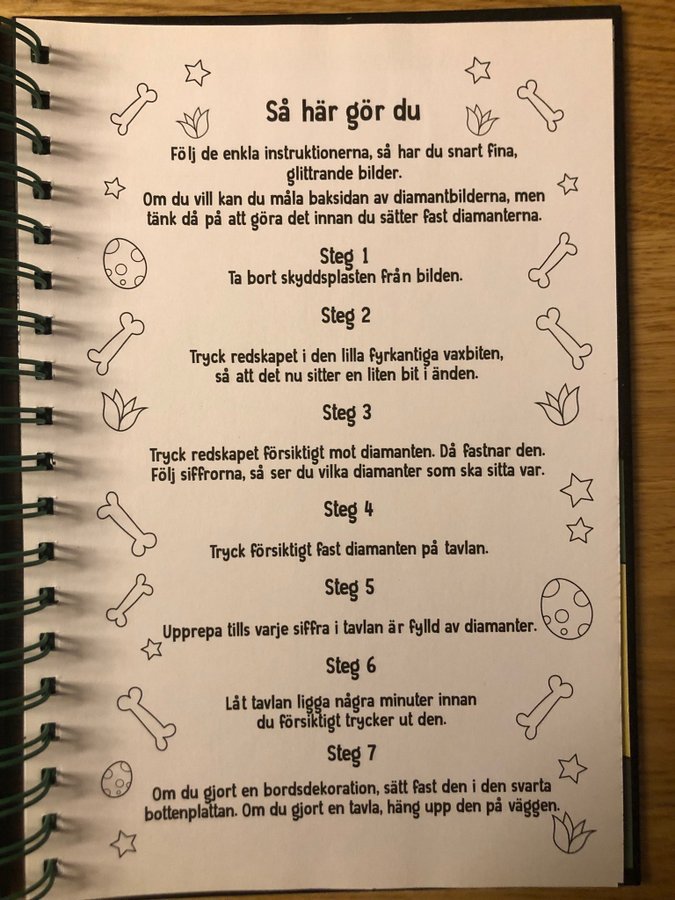 Så här gör du
Följ de enkla instruktionerna, så har du snart fina,
glittrande bilder.
Om du vill kan du måla baksidan av diamantbilderna, men
tänk då på att göra det innan du sätter fast diamanterna.
Steg 1
Ta bort skyddsplasten från bilden.
Steg 2
Tryck redskapet i den lilla fyrkantiga vaxbiten,
så att det nu sitter en liten bit i änden.
Steg 3
Tryck redskapet försiktigt mot diamanten. Då fastnar den.
Följ siffrorna, så ser du vilka diamanter som ska sitta var.
Steg 4
Tryck försiktigt fast diamanten på tavlan.
Steg 5
Upprepa tills varje siffra i tavlan är fylld av diamanter.
Steg 6
Låt tavlan ligga några minuter innan
du försiktigt trycker ut den.
Steg 7
Om du gjort en bordsdekoration, sätt fast den i den svarta
bottenplattan. Om du gjort en tavla, häng upp den på väggen.